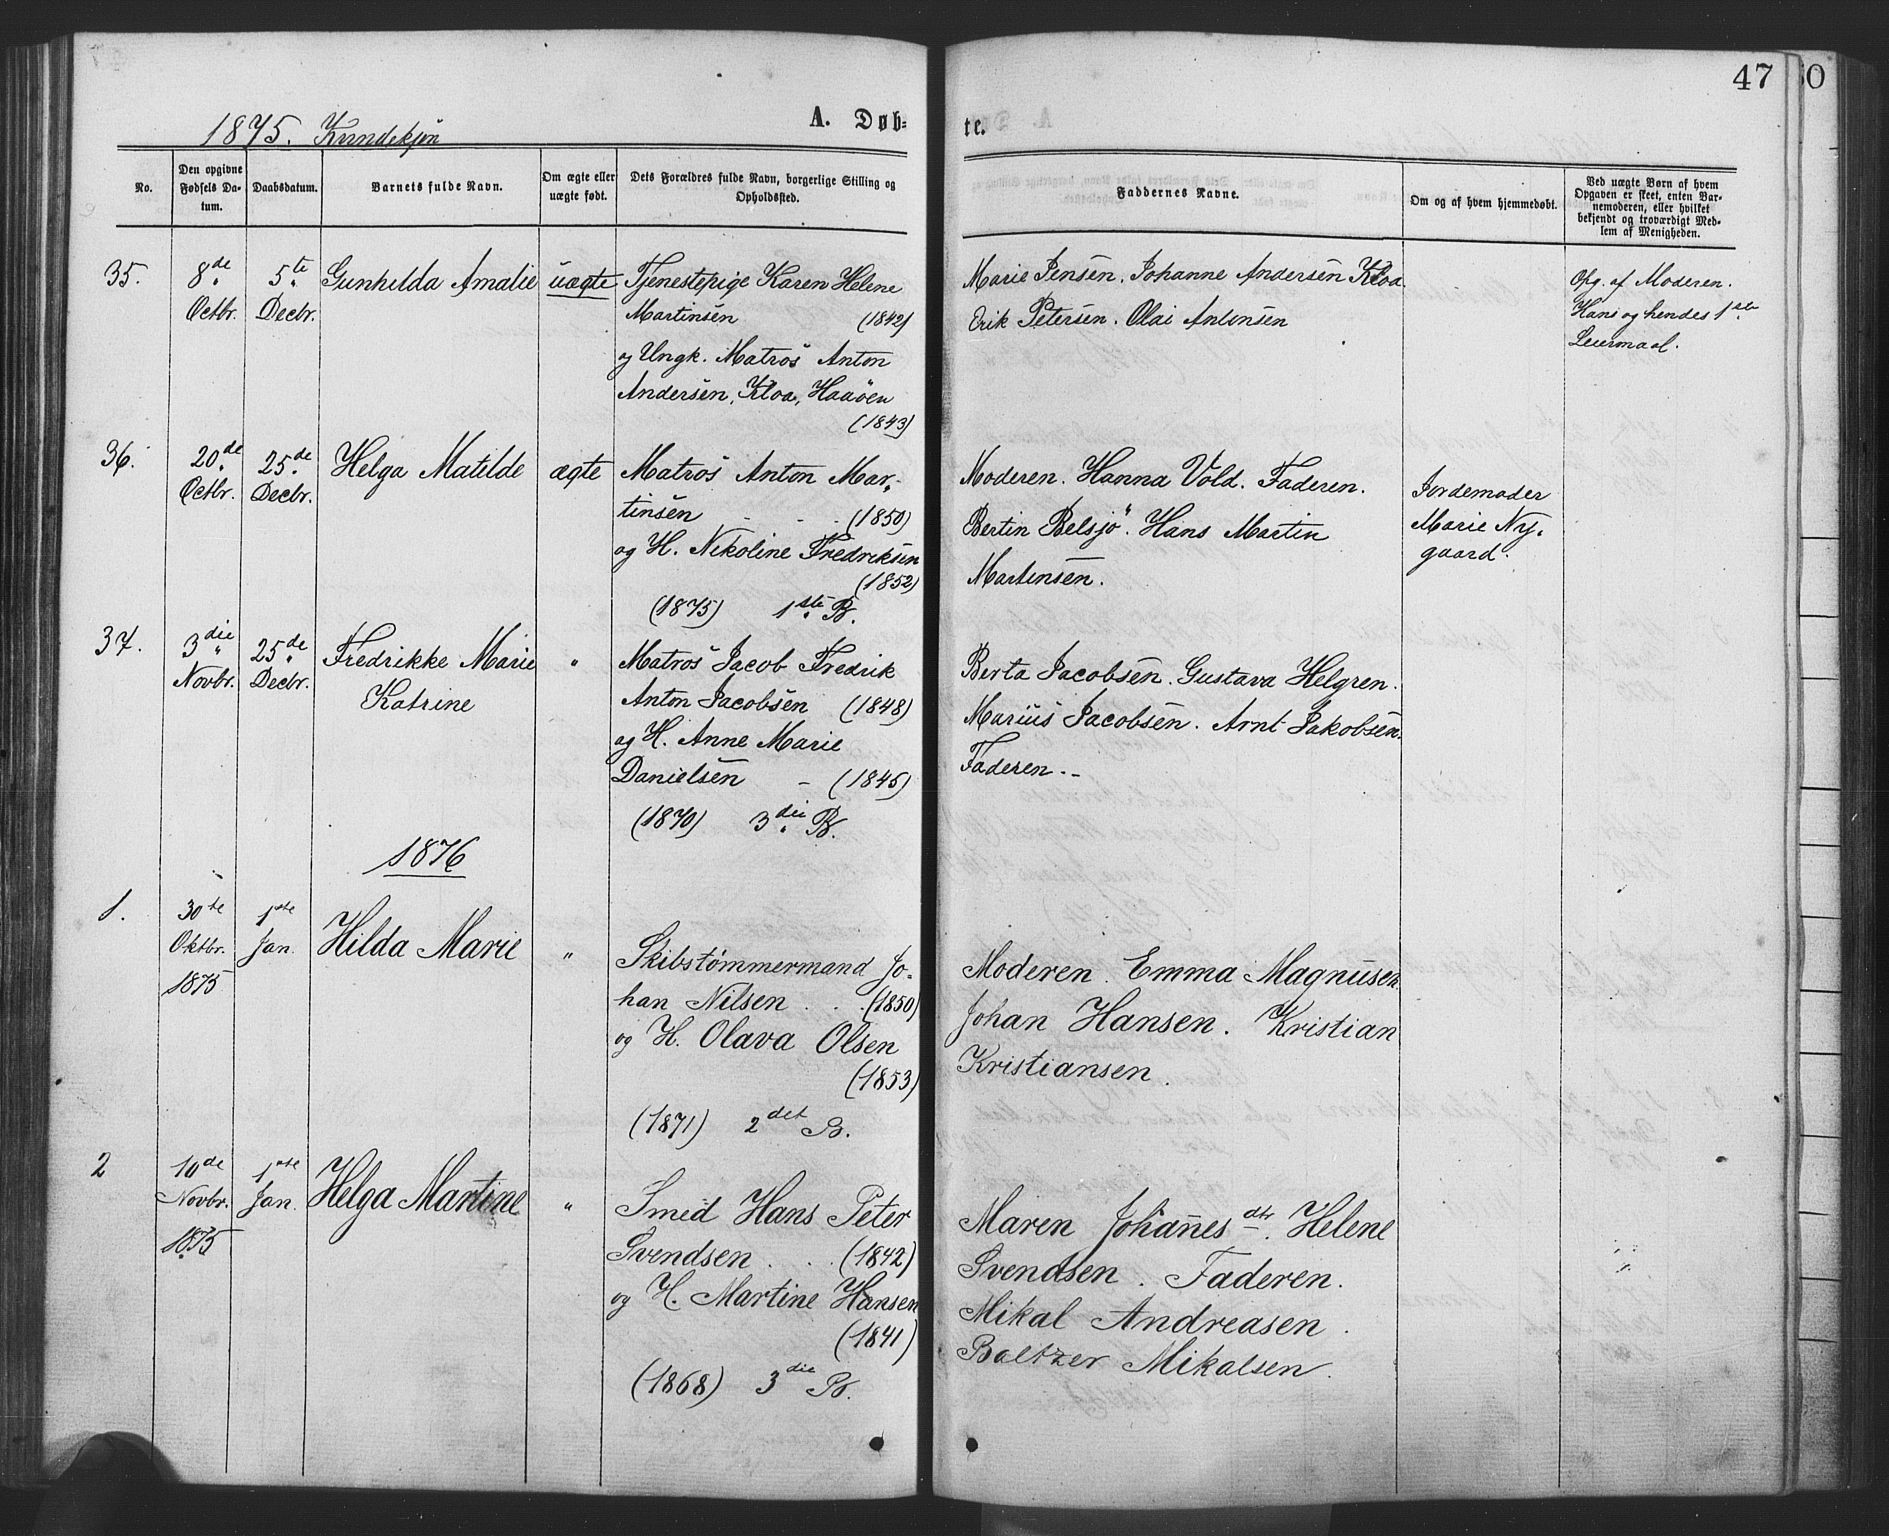 47
1875. Kvindekjøn
A. Døb-
te.
No.
Den opgivne Fødsels Da-tum.
Daabsdatum.
Barnets fulde Navn.
Om ægte eller uægte født.
Dets Forældres fulde Navn, borgerlige Stilling og Opholdssted.
Faddernes Navne.
Om og af hvem hjemmedøbt.
Ved uægte Børn af hvem Opgaven er skeet, enten Bar-nemoderen, eller hvilket bekjendt og troværdigt Med-lem af Menigheden.
35.
8de Octbr.
5te Decbr.
Gunhilda Amalie
uægte
Tjenestepige Karen Helene
Martinsen (1842)
og Ungk. Matros Anton
Andersen, Kloa, Haaöen
(1843)
Marie Jensen. Johanne Andersen Kloa.
Erik Petersen. Olai Antonsen
Opg. af Moderen.
Hans og hendes 1ste
Leiermaal.
36.
20de Octbr.
25de Decbr.
Helga Matilde
ægte
Matros Anton Mar-
tinsen . . . (1850)
og H. Nikoline Fredriksen
(1852)
(1875) 1ste B.
Moderen. Hanna Vold. Faderen.
Bertin Belsjö. Hans Martin
Martinsen.
Jordemoder
Marie Ny-
gaard.
37.
3die Novbr.
25de Decbr.
Fredrikke Marie
Katrine
"
Matros Jacob Fredrik
Anton Jacobsen (1848)
og H. Anne Marie
Danielsen - (1845)
(1870) 3die B.
Berta Jacobsen. Gustava Helgren.
Marius Jacobsen. Arnt Jakobsen.
Faderen.-
1876
1.
30te Oktbr. 1875
1ste Jan.
Hilda Marie
"
Skibstømmermand Jo-
han Nilsen . . (1850)
og H. Olava Olsen
(1853)
(1871) 2det B.
Moderen. Emma Magnusen.
Johan Hansen. Kristian
Kristiansen.
2
10de Novbr. 1875
1ste Jan.
Helga Martine
"
Smed Hans Peter
Svendsen . . . (1842)
og H. Martine Hansen
(1841)
(1868) 3die B.
Maren Johanes dtr. Helene
Svendsen. Faderen.
Mikal Andreasen.
Baltzer Mikalsen.